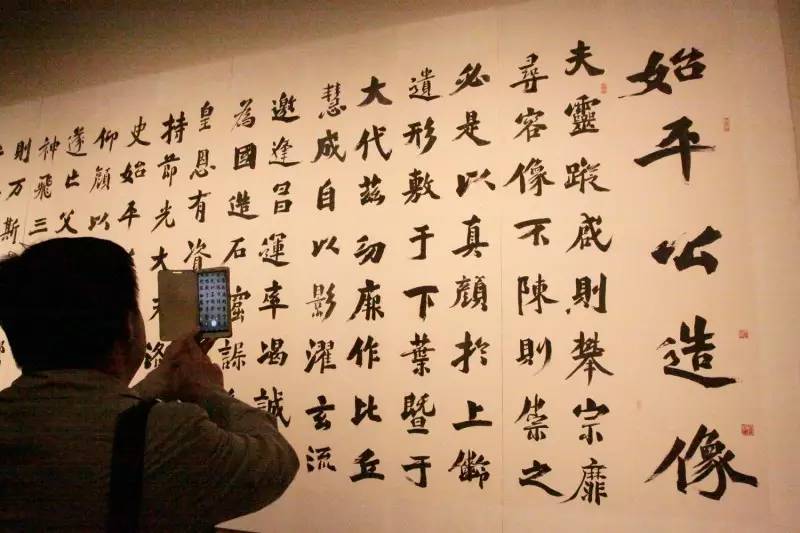 始平公造像
夫靈蹤咸則攀宗靡
尋容像不陳則崇之
必是以真顏於上齡
遺形敷于下葉暨于
大代茲功廉作比丘
慧成自以影濯玄流
邀逢昌運率竭誠
為國造石窟
皇恩有資
持節光大夫洛
史始平
仰顏以
遂亡父
神飛三
則万斯